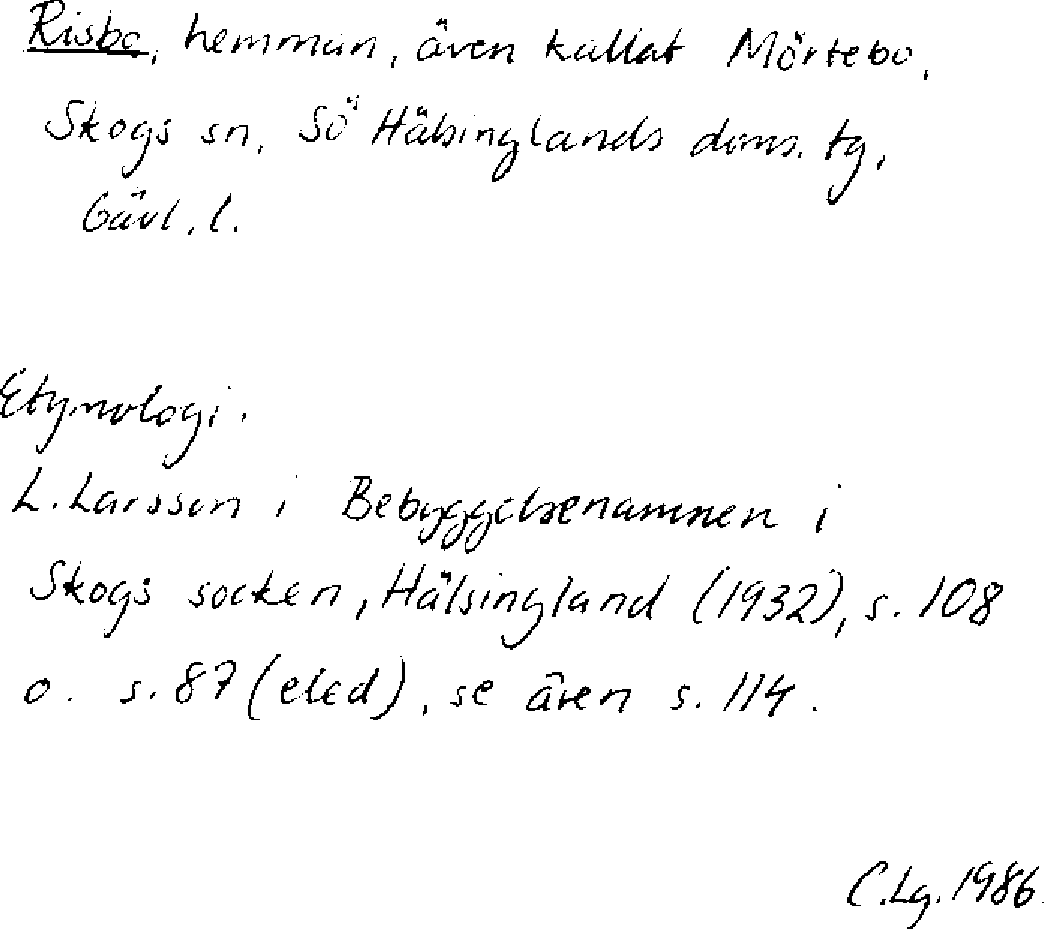 Risbo, hemman, även kallat Mörtebo,
Skogs sn, Sö Hälsinglands doms. tg,
Gävl. l.
Etymologi.
L. Larsson i Bebyggelsenamnen i
Skogs socken, Hälsingland (1932), s. 108
o. s. 87 (eled), se även s. 114.
C.Lg. 1986.